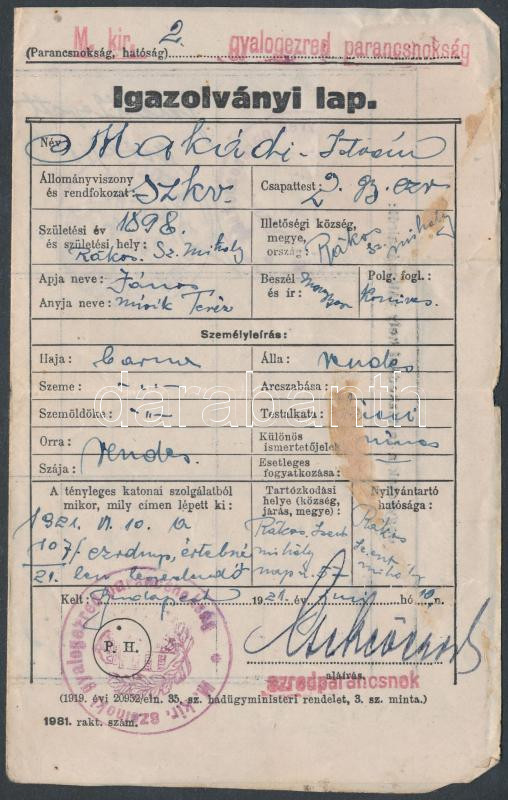 M. kir. 2. gyalogezred parancsnokság
(Parancsnokság, hatóság)
Igazolványi lap.
Név: Makádi István
Állományviszony és rendfokozat: szkv.
Csapattest: 2. gy. ezr
Születési év 1898.
és születési hely: Rákos Sz. mihály
Illetőségi község, megye, ország: Rákos sz. mihály
Apja neve: János
Anyja neve: Teréz
Beszél és ír: magyar
Polg. fogl.: Kőmíves
Személyleírás:
Haja: barna
Álla: rendes
Szeme: -"-
Arcszabása:
Szemöldöke: -"-
Testalkata:
Orra: rendes
Különös ismertetőjelek: nincs
Szája:
Esetleges fogyatkozása:
A tényleges katonai szolgálatból mikor, mily címen lépett ki:
Tartózkodási helye (község, járás, megye):
Nyilvántartó hatósága:
1921. VI. 10. a
107/ ezrdnp. értelmé
21.
Rákos Szent mihály
57
Rákos szent mihály
Kelt: Budapest 1921. év Juni hó 10.n
P. H.
M. kir. szolnoki gyalogezred parancsnokság
aláírás.
ezredparancsnok
(1919. évi 20952/eln. 35. sz. hadügyminiszteri rendelet, 3. sz. minta.)
1981. rakt. szám.
darabanth